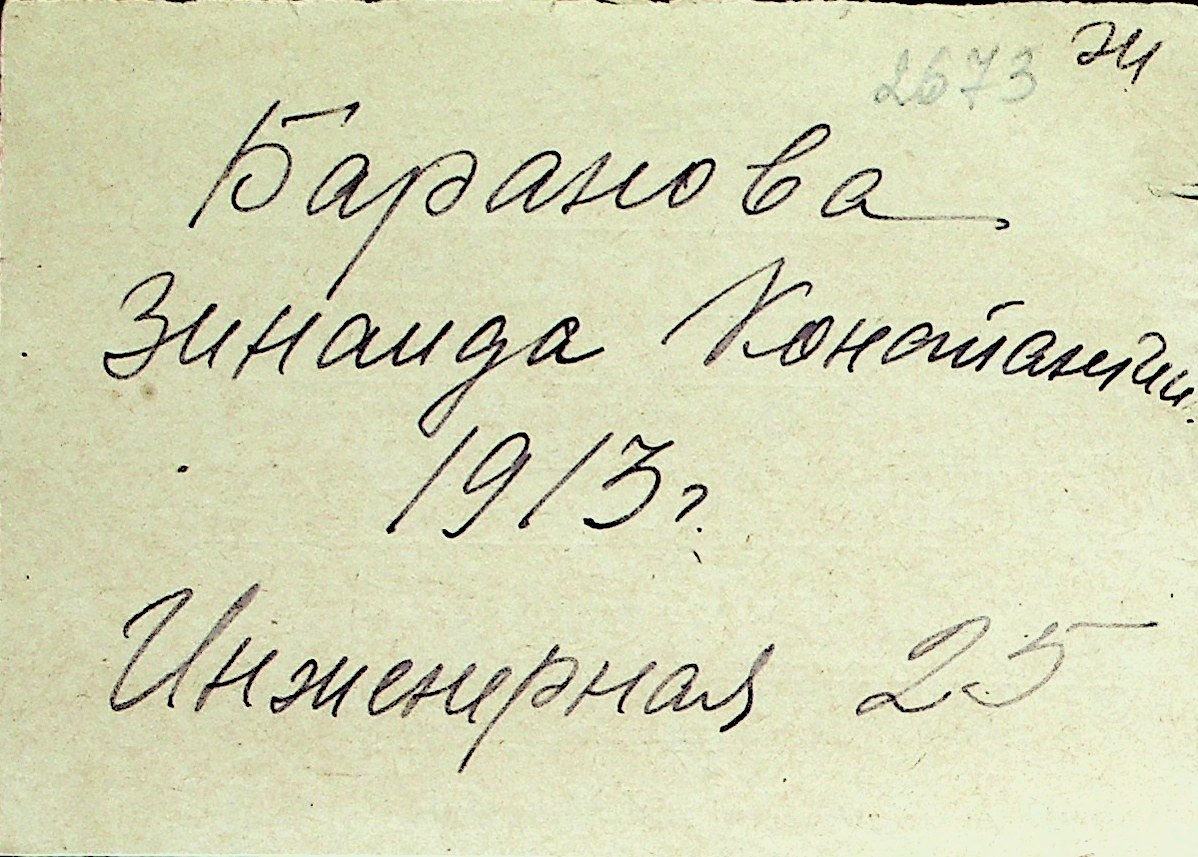 2673
Баранова
Зинаида Константин.
1913 г.
Инженерная 25